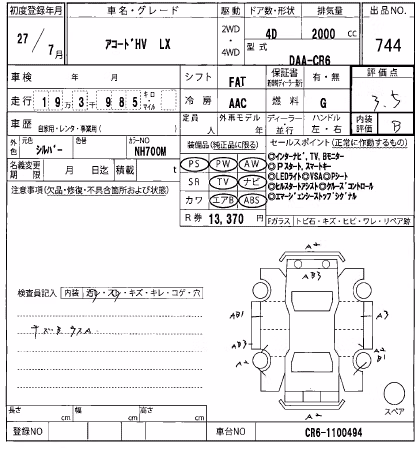 初度登録年月 車名・グレード 駆動 ドア数・形状 排気量 出品NO.
27 / 7月 アコードHV LX 2WD・4WD 4D 2000 cc 744
型式 DAA-CR6
車検 年 月 シフト FAT 保証書 有・無 評価点
走行 19万3千985 キロ・マイル 冷房 AAC 燃料 G 3.5
車歴 自家用・レンタ・事業用( ) 定員 人 外車モデル 年 ディーラー 並行 ハンドル 左・右 内装評価 B
外色 元色 シルバー 色替 カラーNO NH700M
装備品(純正品に限る) セールスポイント(正常に作動するもの)
名義変更期限 月 日 積載 t
PS PW AW
SR TV ナビ
カワ エアB ABS
◎インターナビ、TV、Bモニター
◎Pスタート、スマートキー
◎LEDライト◎VSA◎Pシート
◎ヒルスタートアシスト◎クルーズコントロール
◎エマージェンシーストップシグナル
注意事項(欠品・修復・不具合箇所および状態)
R券 13,370 円
Fガラス トビ石・キズ・ヒビ・ワレ・リペア跡
検査員記入 内装
キズ・キレ・コゲ・穴
A2
AB3
AB1
A3
AB3
A2
B1
A2
スペア
長さ cm 幅 cm 高さ cm
登録NO 車台NO CR6-1100494